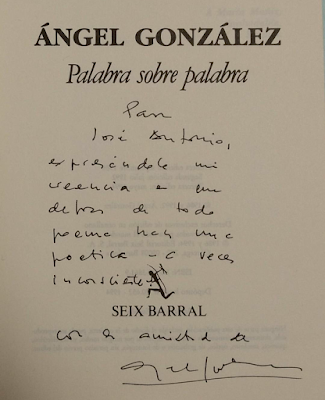 ÁNGEL GONZÁLEZ
Palabra sobre palabra
Para
José Antonio,
expresándole mi
creencia en que
detrás de todo
poema hay una
poética - a veces
inconsciente.
SEIX BARRAL
con la amistad de